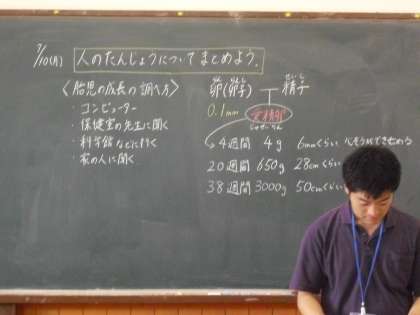 7/10(月) 人のたんじょうについてまとめよう。
〈胎児の成長の調べ方〉
・コンピューター
・保健室の先生に聞く
・科学館などに行く
・家の人に聞く
らん らんし せいし
卵(卵子) 精子
0.1mm 受精卵
じゅせいらん
4週間 4g 6mmくらい 心ぞうができ始める
20週間 650g 28cmくらい
38週間 3000g 50cmくらい